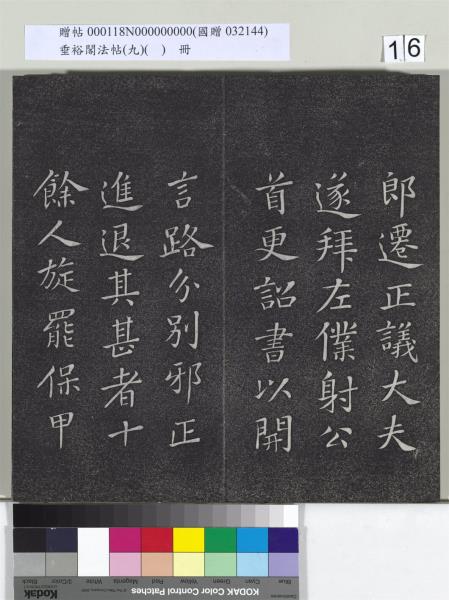 贈帖 000118N000000000(國贈 032144)
垂裕閣法帖(九)( ) 冊
16
郎遷正議大夫
遂拜左僕射公
首更詔書以開
言路分別邪正
進退其甚者十
餘人旋罷保甲
Blue Cyan Green Yellow Red Magenta White 3/Color Black
KODAK Color Control Patches
Kodak